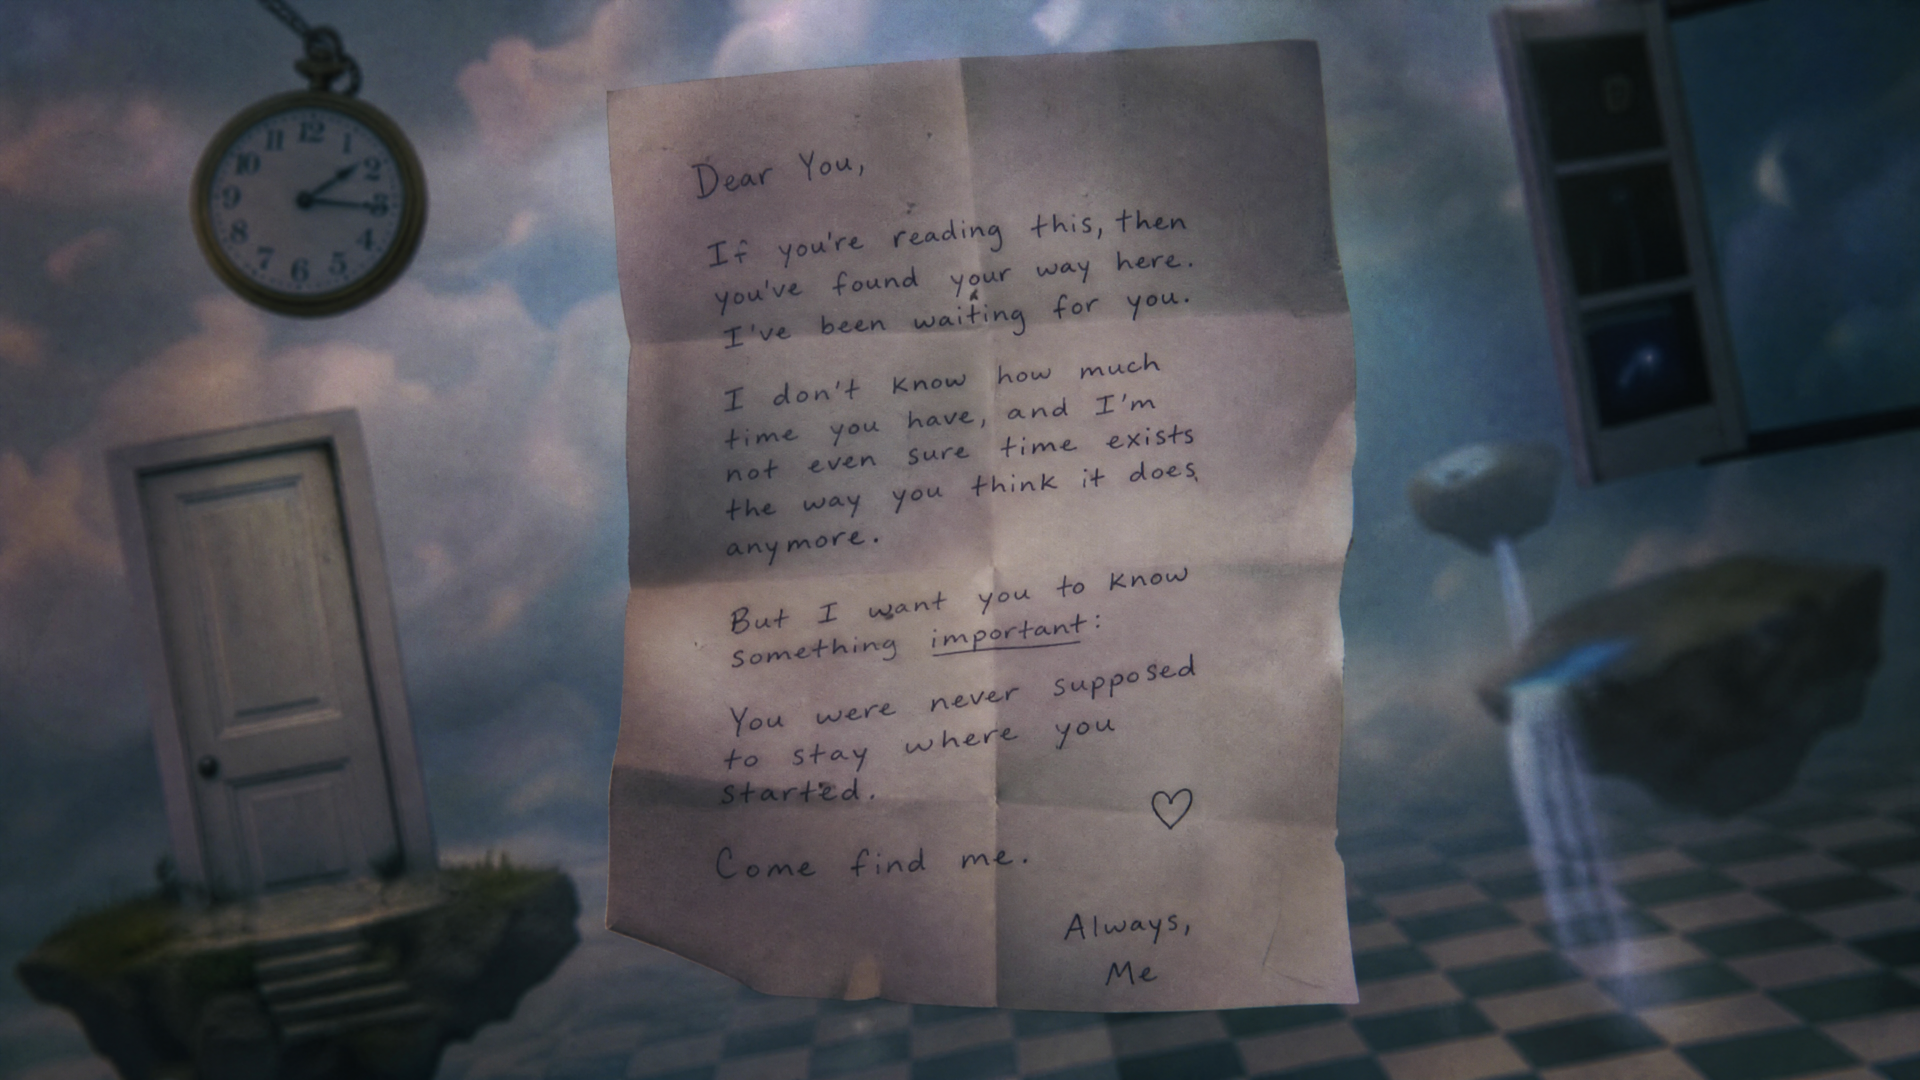 12
1
2
3
4
5
6
7
8
9
10
11
Dear You,
If you're reading this, then
you've found your way here.
I've been waiting for you.
I don't know how much
time you have, and I'm
not even sure time exists
the way you think it does
anymore.
But I want you to know
something important:
You were never supposed
to stay where you
started.
Come find me.
Always,
Me